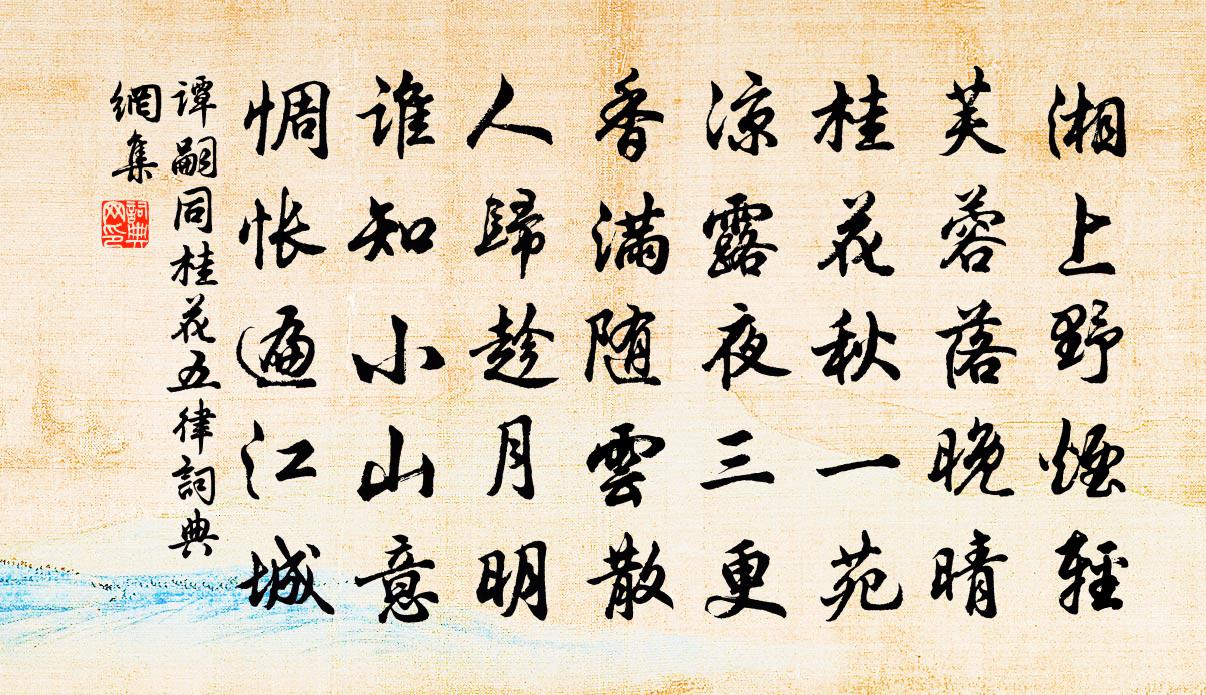 湘上野煙輕
芙蓉落晚晴
桂花秋一苑
涼露夜三更
香滿随雲散
人歸趁月明
谁知小山意
惆怅遍江城
谭嗣同桂花五律詞典
網集
詞典
网印